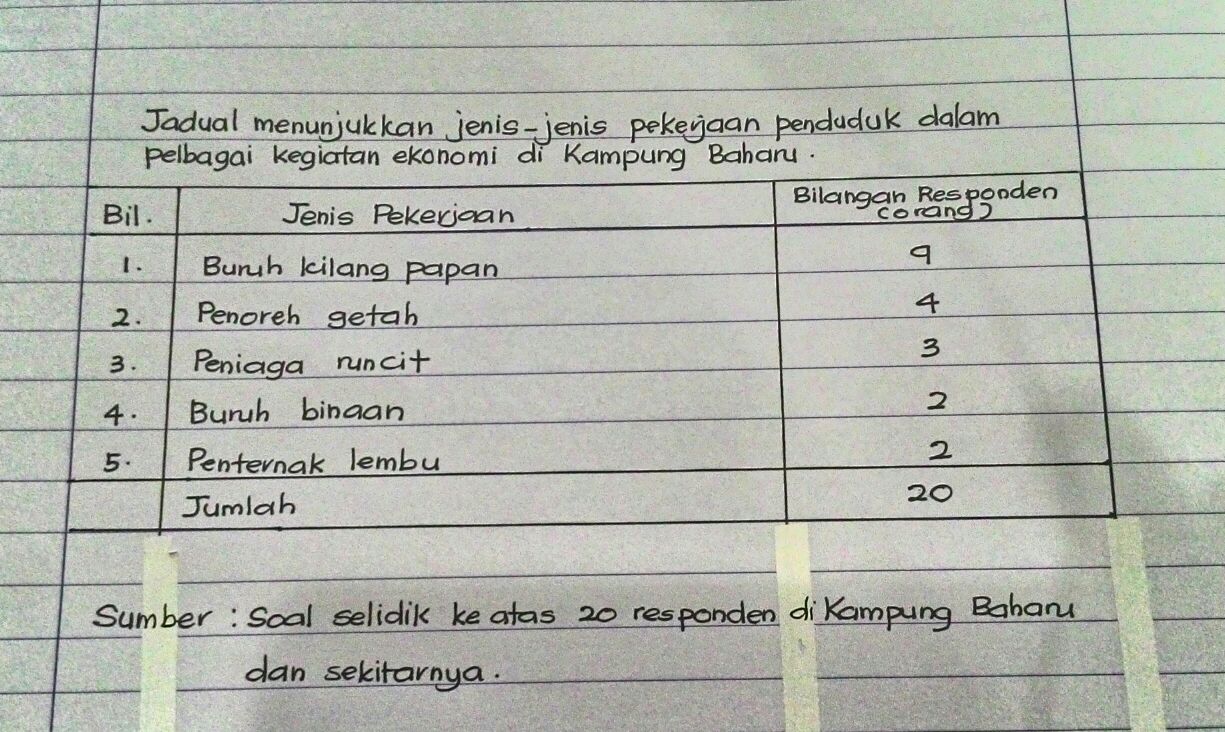 Jadual menunjukkan jenis-jenis pekerjaan penduduk dalam
pelbagai kegiatan ekonomi di Kampung Baharu.
Bil. Jenis Pekerjaan Bilangan Responden (orang)
1. Buruh kilang papan 9
2. Penoreh getah 4
3. Peniaga runcit 3
4. Buruh binaan 2
5. Penternak lembu 2
Jumlah 20
Sumber : Soal selidik ke atas 20 responden di Kampung Baharu
dan sekitarnya.